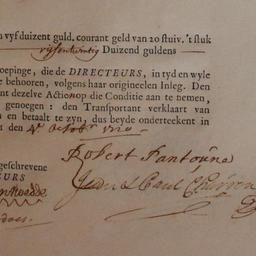 vyf duizent guld. courant geld van 20 stuiv. 't stuk
vyfentwintig Duizend guldens
oepinge, die de DIRECTEURS, in tyd en wyle
e behooren, volgens haar origineelen Inleg. Den
nt dezelve Actien op die Conditie aan te nemen,
genoegen: den Transportant verklaart van
n en betaalt te zyn, dus beyde onderteekent in
den 4e Octobr 1720
geschreve
EURS
Robert Fantoyne
Jean & Paul